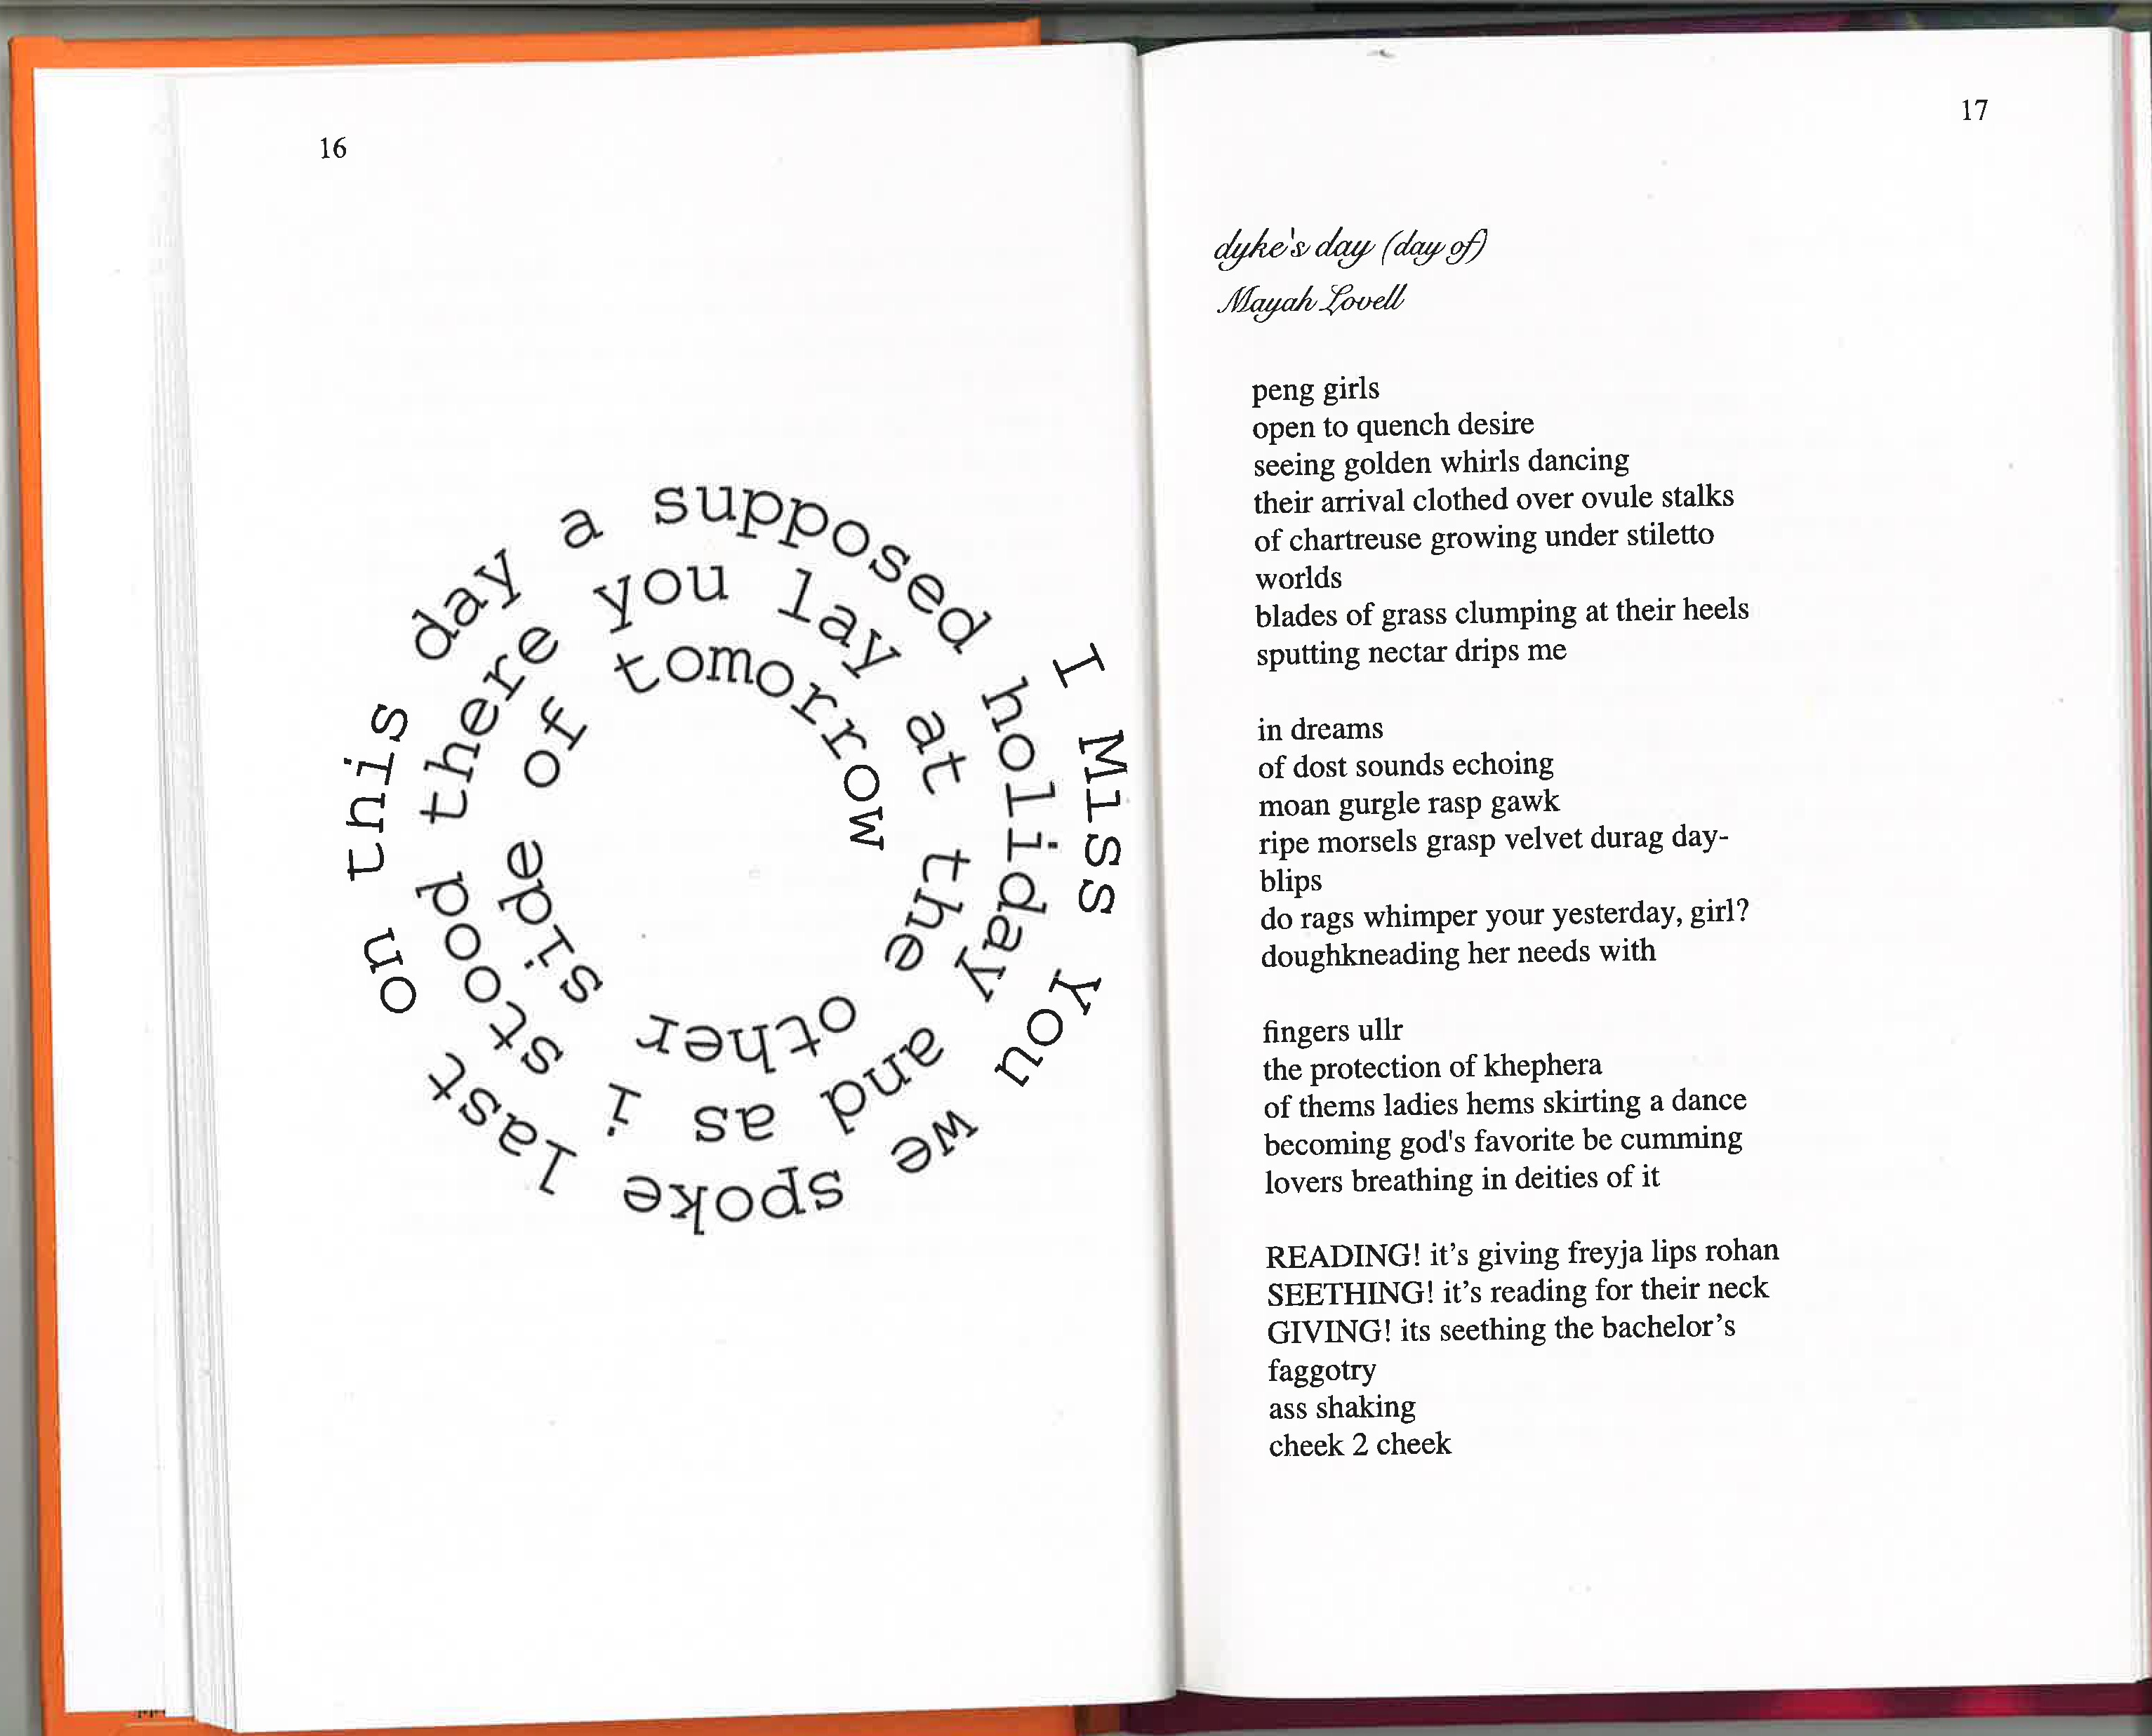 16
I Miss You we spoke last on this day a supposed holiday and as i stood there you lay at the other side of tomorrow
17
dyke's day (day of)
Mayah Lovell
peng girls
open to quench desire
seeing golden whirls dancing
their arrival clothed over ovule stalks
of chartreuse growing under stiletto
worlds
blades of grass clumping at their heels
sputting nectar drips me
in dreams
of dost sounds echoing
moan gurgle rasp gawk
ripe morsels grasp velvet durag day-
blips
do rags whimper your yesterday, girl?
doughkneading her needs with
fingers ullr
the protection of khephera
of thems ladies hems skirting a dance
becoming god's favorite be cumming
lovers breathing in deities of it
READING! it's giving freyja lips rohan
SEETHING! it's reading for their neck
GIVING! its seething the bachelor's
faggotry
ass shaking
cheek 2 cheek